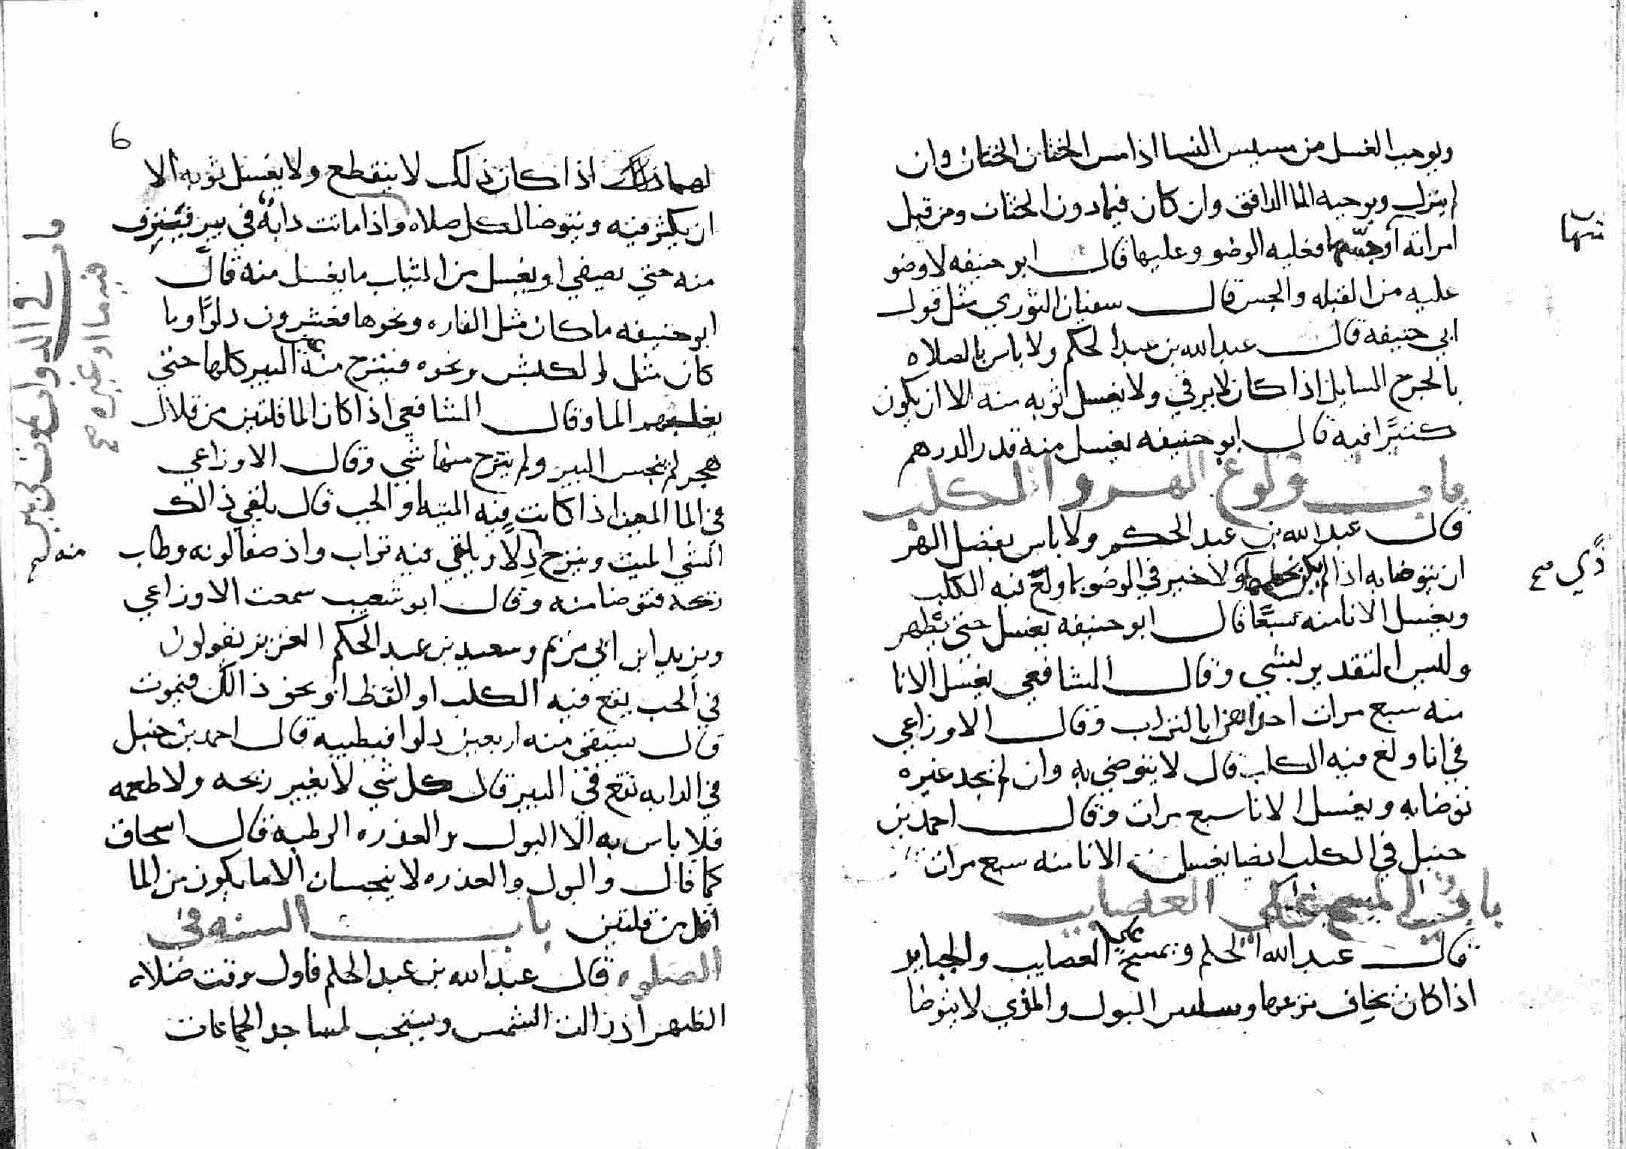 ويوجب الغسل من مسيس النسا اذا مس الختان الختان وان
لم ينزل ويوجبه الما الدافق وان كان فيما دون الختان ومن قبل
امراته او جسها فعليه الوضو وعليها قال ابو حنيفه لا وضو
عليه من القبله والجس قال سفيان الثوري مثل قول
ابي حنيفه قال عبد الله بن عبد الحكم ولا باس بالصلاه
بالجرح السايل اذا كان لا يرقي ولا يغسل ثوبه منه الا ان يكون
كثيرا فيه قال ابو حنيفه يغسل منه قدر الدرهم
باب ولوغ الهر والكلب
قال عبد الله بن عبد الحكم ولا باس بفضل الهر
ان يتوضا به اذا لم يكن بخطمها ولا خير في الوضو بما ولغ فيه الكلب
ويغسل الانا منه سبعا قال ابو حنيفه يغسل حتي يطهر
وليس التقدير بشي وقال الشافعي يغسل الانا
منه سبع مرات احداهن بالتراب وقال الاوزاعي
في انا ولغ فيه الكلب قال لا يتوضي به وان لم يجد غيره
توضا به ويغسل الانا سبع مرات وقال احمد بن
حنبل في الكلب ايضا يغسل الانا منه سبع مرات
باب في المسح علي العصايب
قال عبد الله الحكم ويمسح علي العصايب والجباير
اذا كان يخاف نزعها وسلس البول والمذي لا يتوضا
6
لهما اذا كان ذلك لا ينقطع ولا يغسل ثوبه الا
ان يكثر فيه ويتوضا لكل صلاه واذا ماتت دابة في بير فينزف
منه حتي يصفي او يغسل من الثياب ما يغسل منه قال
ابو حنيفه ما كان مثل الفاره ونحوها فعشرون دلوا وما
كان مثل الكبش ونحوه فينزح منه البير كلها حتي
يغلبهم الما وقال الشافعي اذا كان الما قلتين من قلال
هجر لم ينجس البير ولم ينزح منها شي وقال الاوزاعي
في الما المعين اذا كانت فيه الميته او الجب قال يلقي ذالك
الشي الميت وينزح دلاء ويلقي فيه تراب واذ صفا لونه وطاب
ريحه فتوضا منه وقال ابو شعيب سمعت الاوزاعي
ويزيد ابن ابي مريم وسعيد بن عبد الحكم العزيز يقولون
في الجب يقع فيه الكلب او القط او نحو ذالك فيموت
قال يستقي منه اربعين دلوا فيطيبه قال احمد بن حنبل
في الدابه تقع في البير قال كل شي لا يغير ريحه ولا طعمه
فلا باس به الا البول والعذره الرطبه قال اسحاق
كما قال والبول والعذره لا ينجسان الا ما يكون من الما
اقل من قلتين باب السنه في
الصلوه قال عبد الله بن عبد الحكم فاول وقت صلاه
الظهر اذ زالت الشمس ويستحب لمساجد الجماعات
باب في الدواب تموت في بير
فيه ما او غيره صح